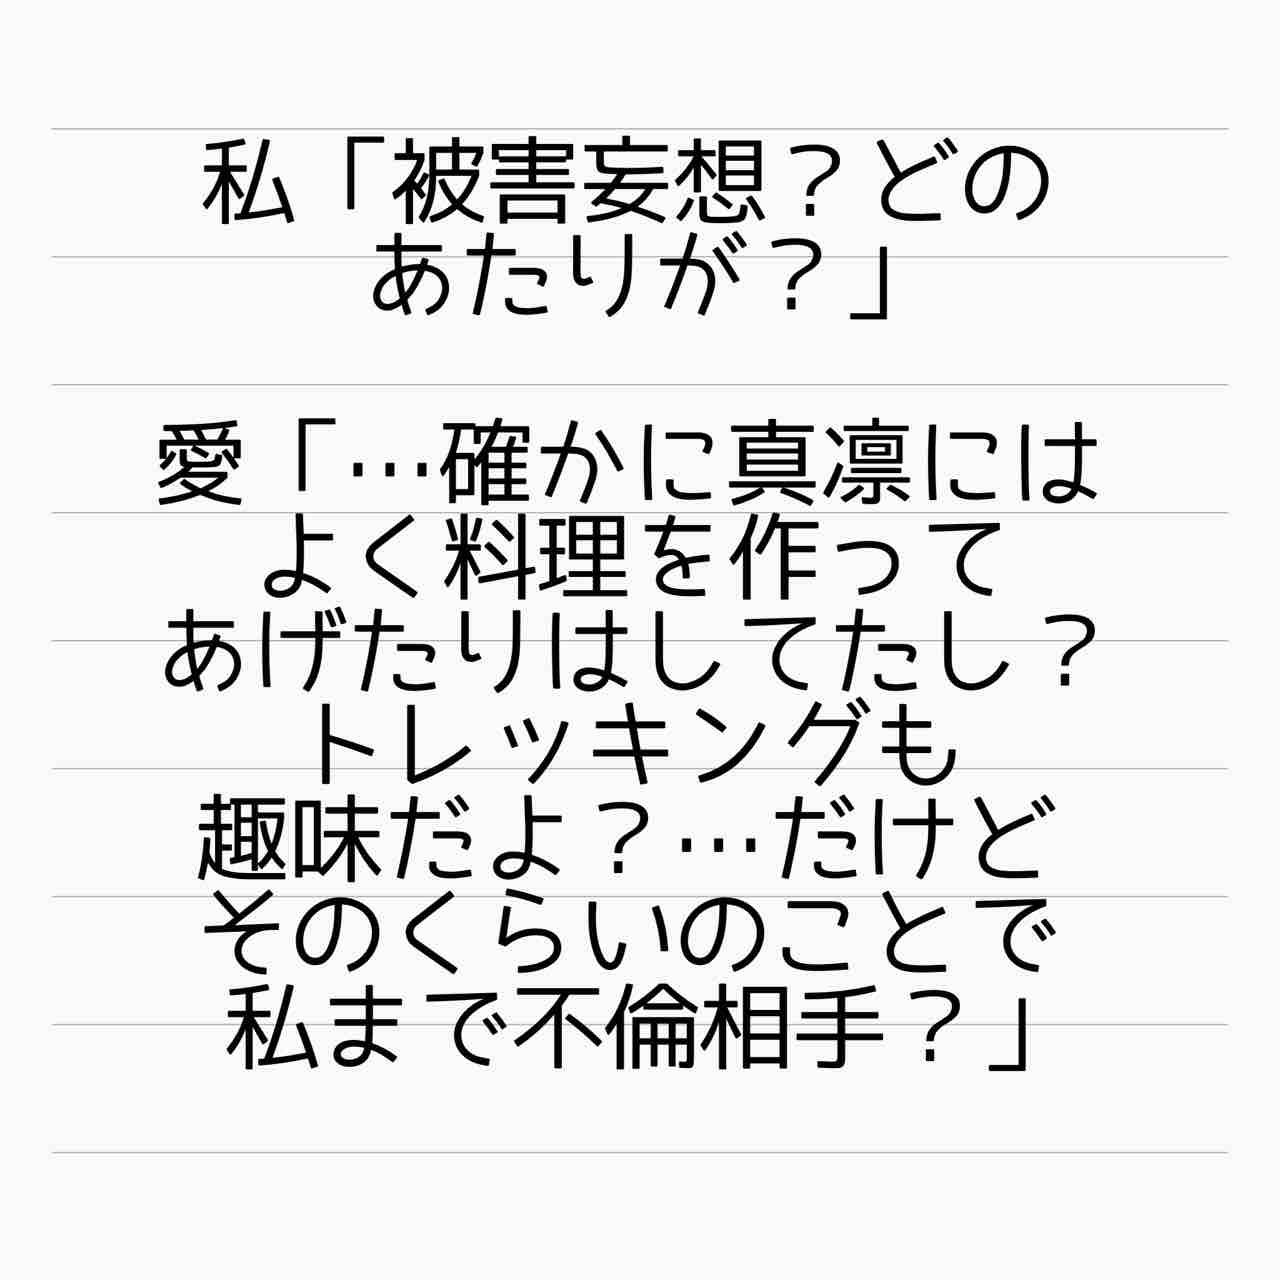 私「被害妄想？どの
あたりが？」
愛「…確かに真凛には
よく料理を作って
あげたりはしてたし？
トレッキングも
趣味だよ？…だけど
そのくらいのことで
私まで不倫相手？」